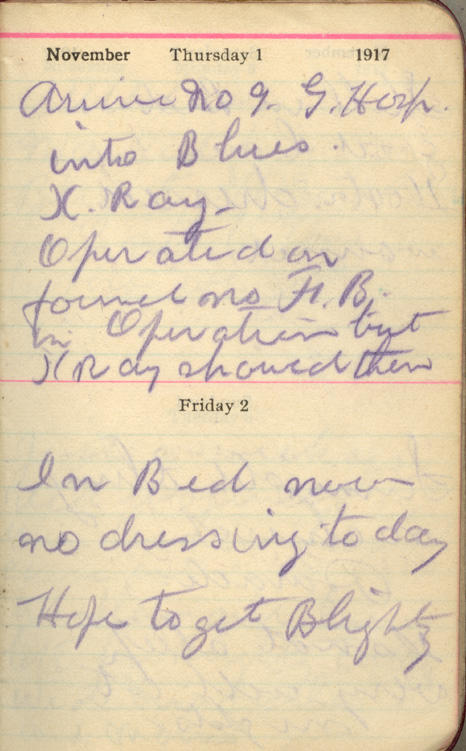 November Thursday 1 1917
Arrive No 9. G. Hosp.
into Blues.
X. Ray.
Operated on
found no F. B.
in Operation but
X Ray showed them
Friday 2
In Bed now
no dressing to day
Hope to get Blighty